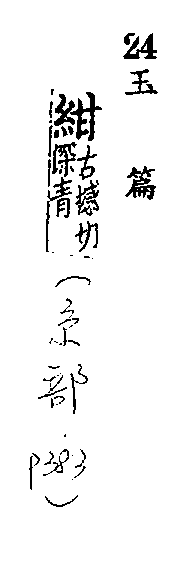 24
玉篇
紺古撼切
深青
(糸部
P383)